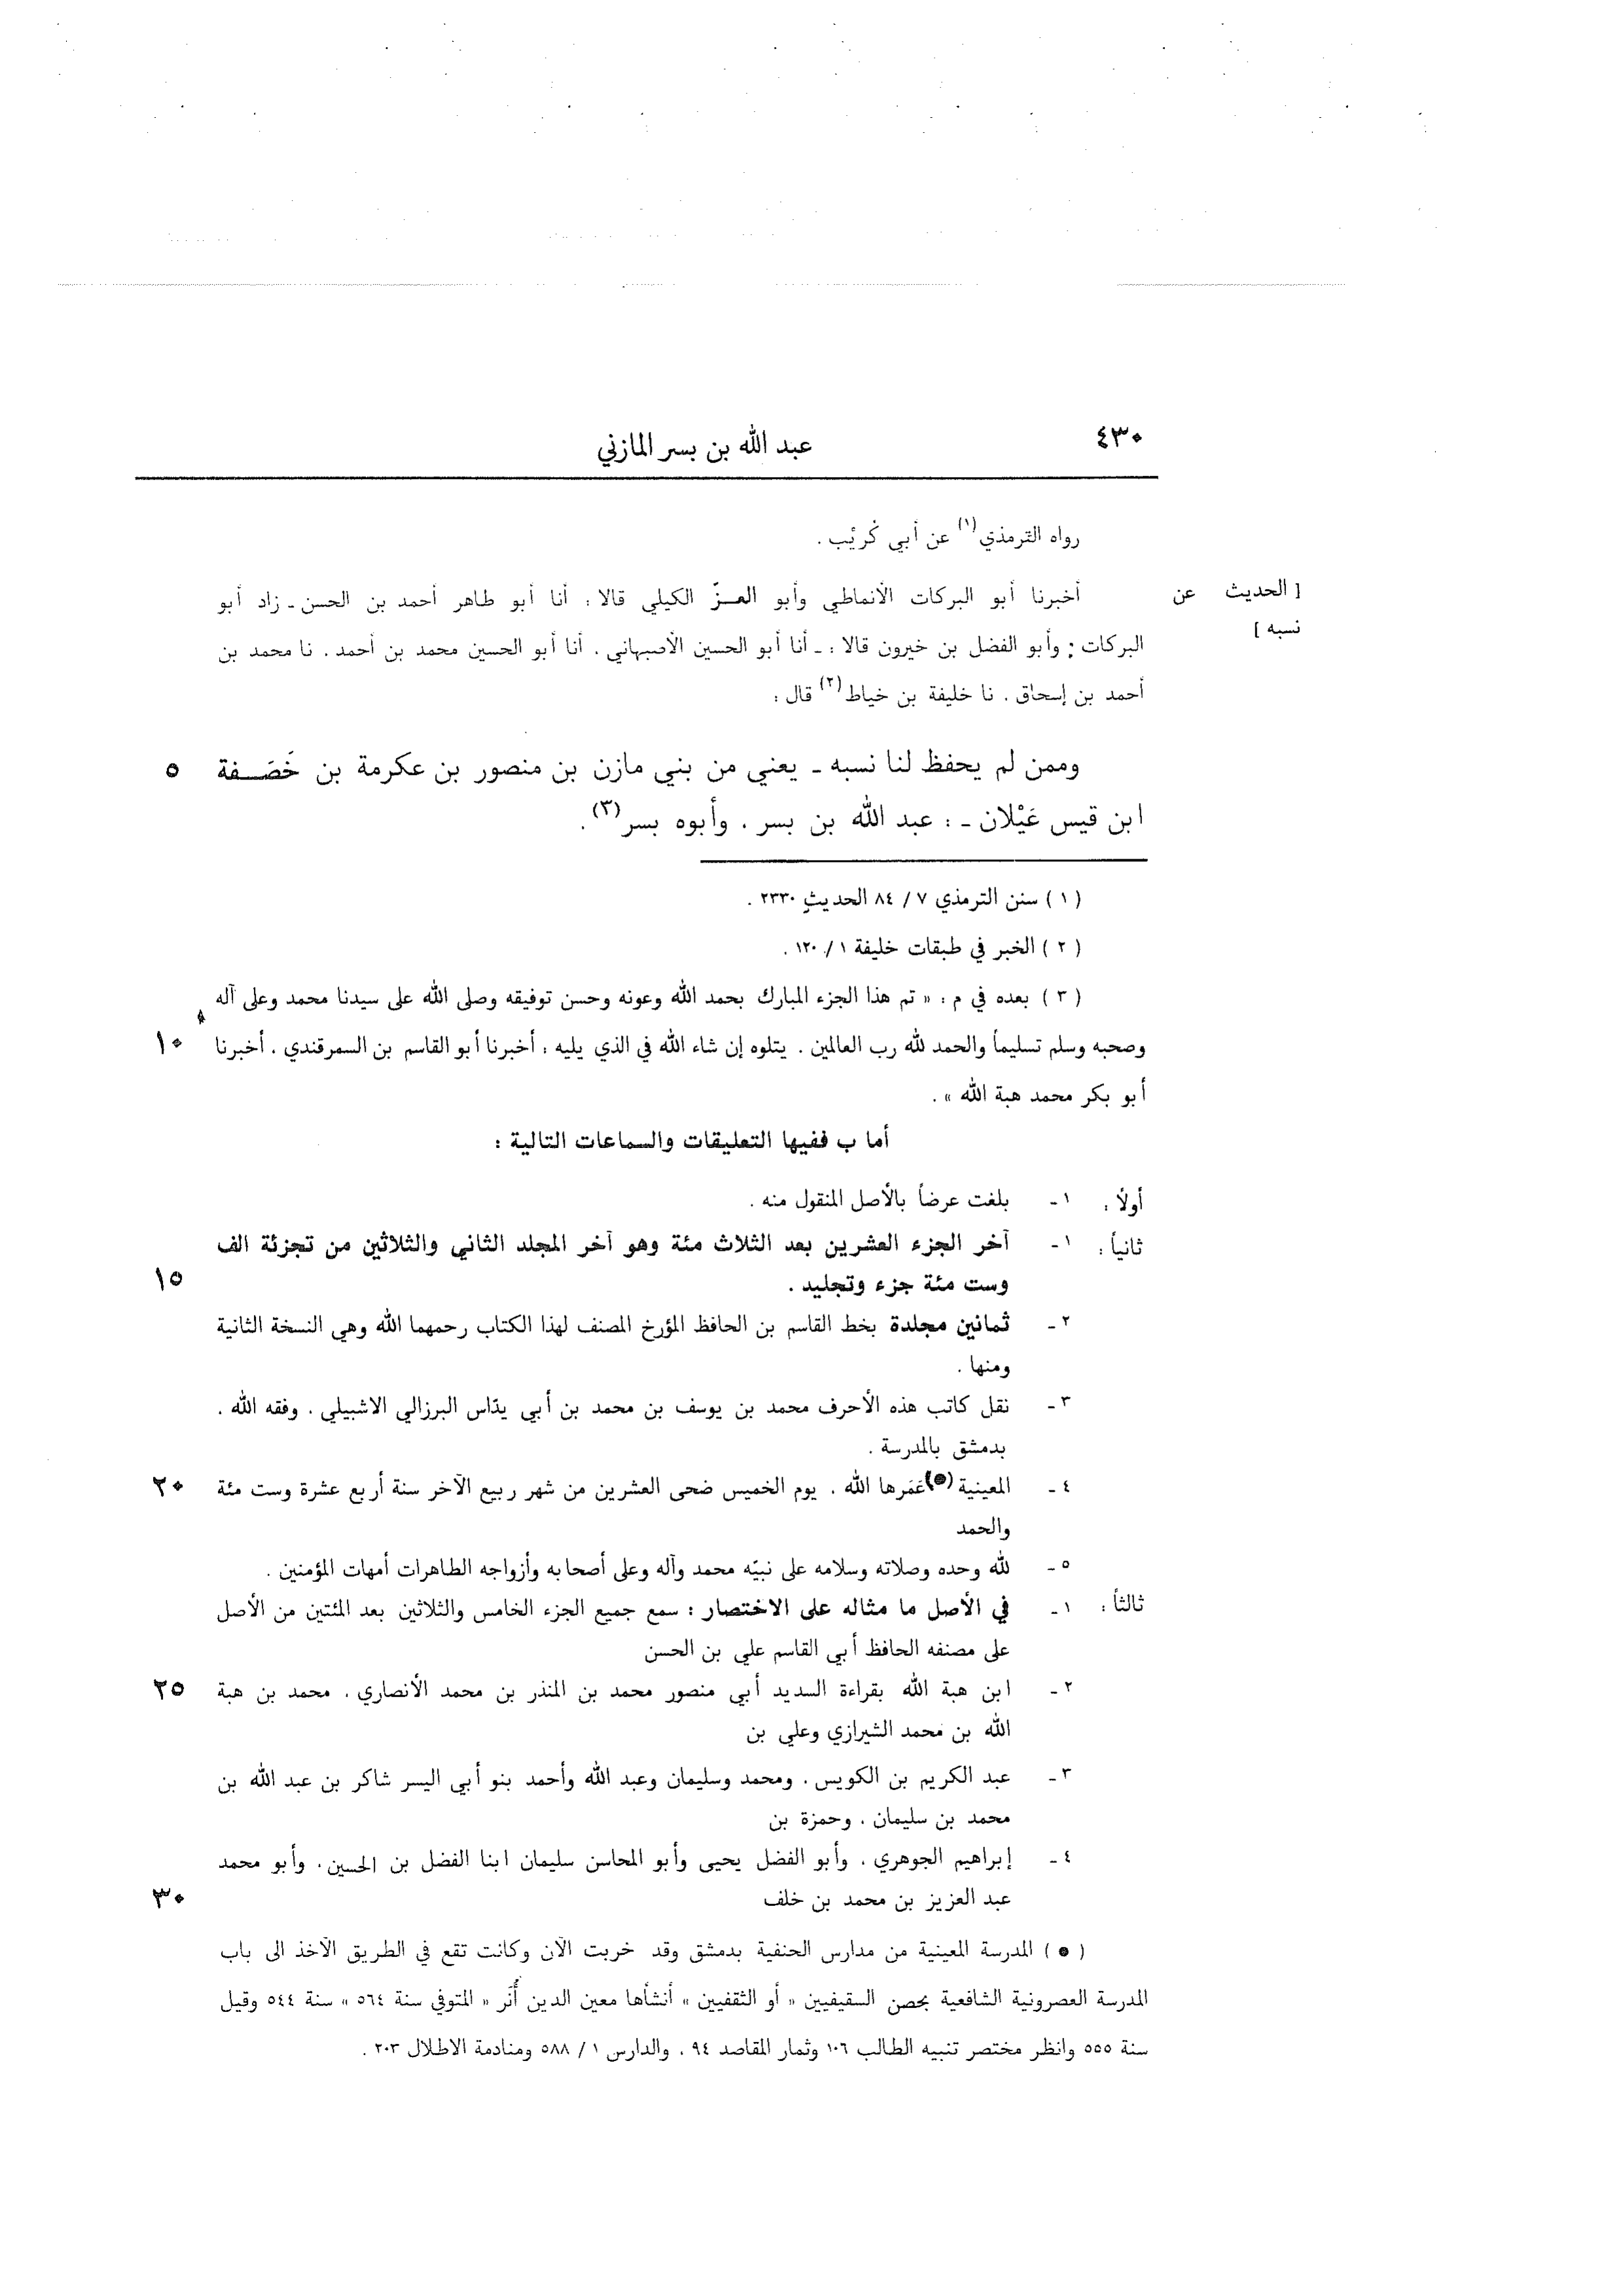 ٤٣٠
عبد الله بن بسر المازني
رواه الترمذي(١) عن أبي كُريْب .
[ الحديث عن
نسبه ]
أخبرنا أبو البركات الأنماطي وأبو العـزّ الكيلي قالا : أنا أبو طاهر أحمد بن الحسن ـ زاد أبو
البركات : وأبو الفضل بن خيرون قالا : ـ أنا أبو الحسين الأصبهاني . أنا أبو الحسين محمد بن أحمد . نا محمد بن
أحمد بن إسحاق . نا خليفة بن خياط(٢) قال :
وممن لم يحفظ لنا نسبه ـ يعني من بني مازن بن منصور بن عكرمة بن خَصَـفة
٥
ابن قيس عَيْلان ـ : عبد الله بن بسر . وأبوه بسر(٣) .
( ١ ) سنن الترمذي ٧ / ٨٤ الحديث ٢٣٣٠ .
( ٢ ) الخبر في طبقات خليفة ١ / ١٢٠ .
( ٣ ) بعده في م : « تم هذا الجزء المبارك بحمد الله وعونه وحسن توفيقه وصلى الله على سيدنا محمد وعلى آله
وصحبه وسلم تسليماً والحمد لله رب العالمين . يتلوه إن شاء الله في الذي يليه : أخبرنا أبو القاسم بن السمرقندي . أخبرنا
١٠
أبو بكر محمد هبة الله » .
أما ب ففيها التعليقات والسماعات التالية :
أولاً : ١ ـ بلغت عرضاً بالأصل المنقول منه .
ثانياً : ١ ـ آخر الجزء العشرين بعد الثلاث مئة وهو آخر المجلد الثاني والثلاثين من تجزئة الف
وست مئة جزء وتجليد .
١٥
٢ ـ ثمانين مجلدة بخط القاسم بن الحافظ المؤرخ المصنف لهذا الكتاب رحمهما الله وهي النسخة الثانية
ومنها .
٣ ـ نقل كاتب هذه الأحرف محمد بن يوسف بن محمد بن أبي يدّاس البرزالي الاشبيلي . وفقه الله .
بدمشق بالمدرسة .
٤ ـ المعينية(●) عَمَرها الله . يوم الخميس ضحى العشرين من شهر ربيع الآخر سنة أربع عشرة وست مئة
٢٠
والحمد
٥ ـ لله وحده وصلاته وسلامه على نبيّه محمد وآله وعلى أصحابه وأزواجه الطاهرات أمهات المؤمنين .
ثالثاً : ١ ـ في الأصل ما مثاله على الاختصار : سمع جميع الجزء الخامس والثلاثين بعد المئتين من الأصل
على مصنفه الحافظ أبي القاسم علي بن الحسن
٢ ـ ابن هبة الله بقراءة السديد أبي منصور محمد بن المنذر بن محمد الأنصاري . محمد بن هبة
٢٥
الله بن محمد الشيرازي وعلي بن
٣ ـ عبد الكريم بن الكويس . ومحمد وسليمان وعبد الله وأحمد بنو أبي اليسر شاكر بن عبد الله بن
محمد بن سليمان . وحمزة بن
٤ ـ إبراهيم الجوهري . وأبو الفضل يحيى وأبو المحاسن سليمان ابنا الفضل بن الحسين . وأبو محمد
عبد العزيز بن محمد بن خلف
٣٠
( ● ) المدرسة المعينية من مدارس الحنفية بدمشق وقد خربت الآن وكانت تقع في الطريق الآخذ الى باب
المدرسة العصرونية الشافعية بحصن السقيفيين « أو الثقفيين » أنشأها معين الدين أُنَر « المتوفي سنة ٥٦٤ » سنة ٥٤٤ وقيل
سنة ٥٥٥ وانظر مختصر تنبيه الطالب ١٠٦ وثمار المقاصد ٩٤ . والدارس ١ / ٥٨٨ ومنادمة الاطلال ٢٠٣ .